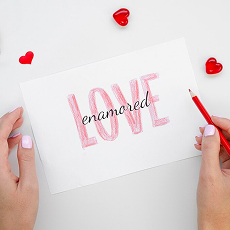 LOVE
enamored